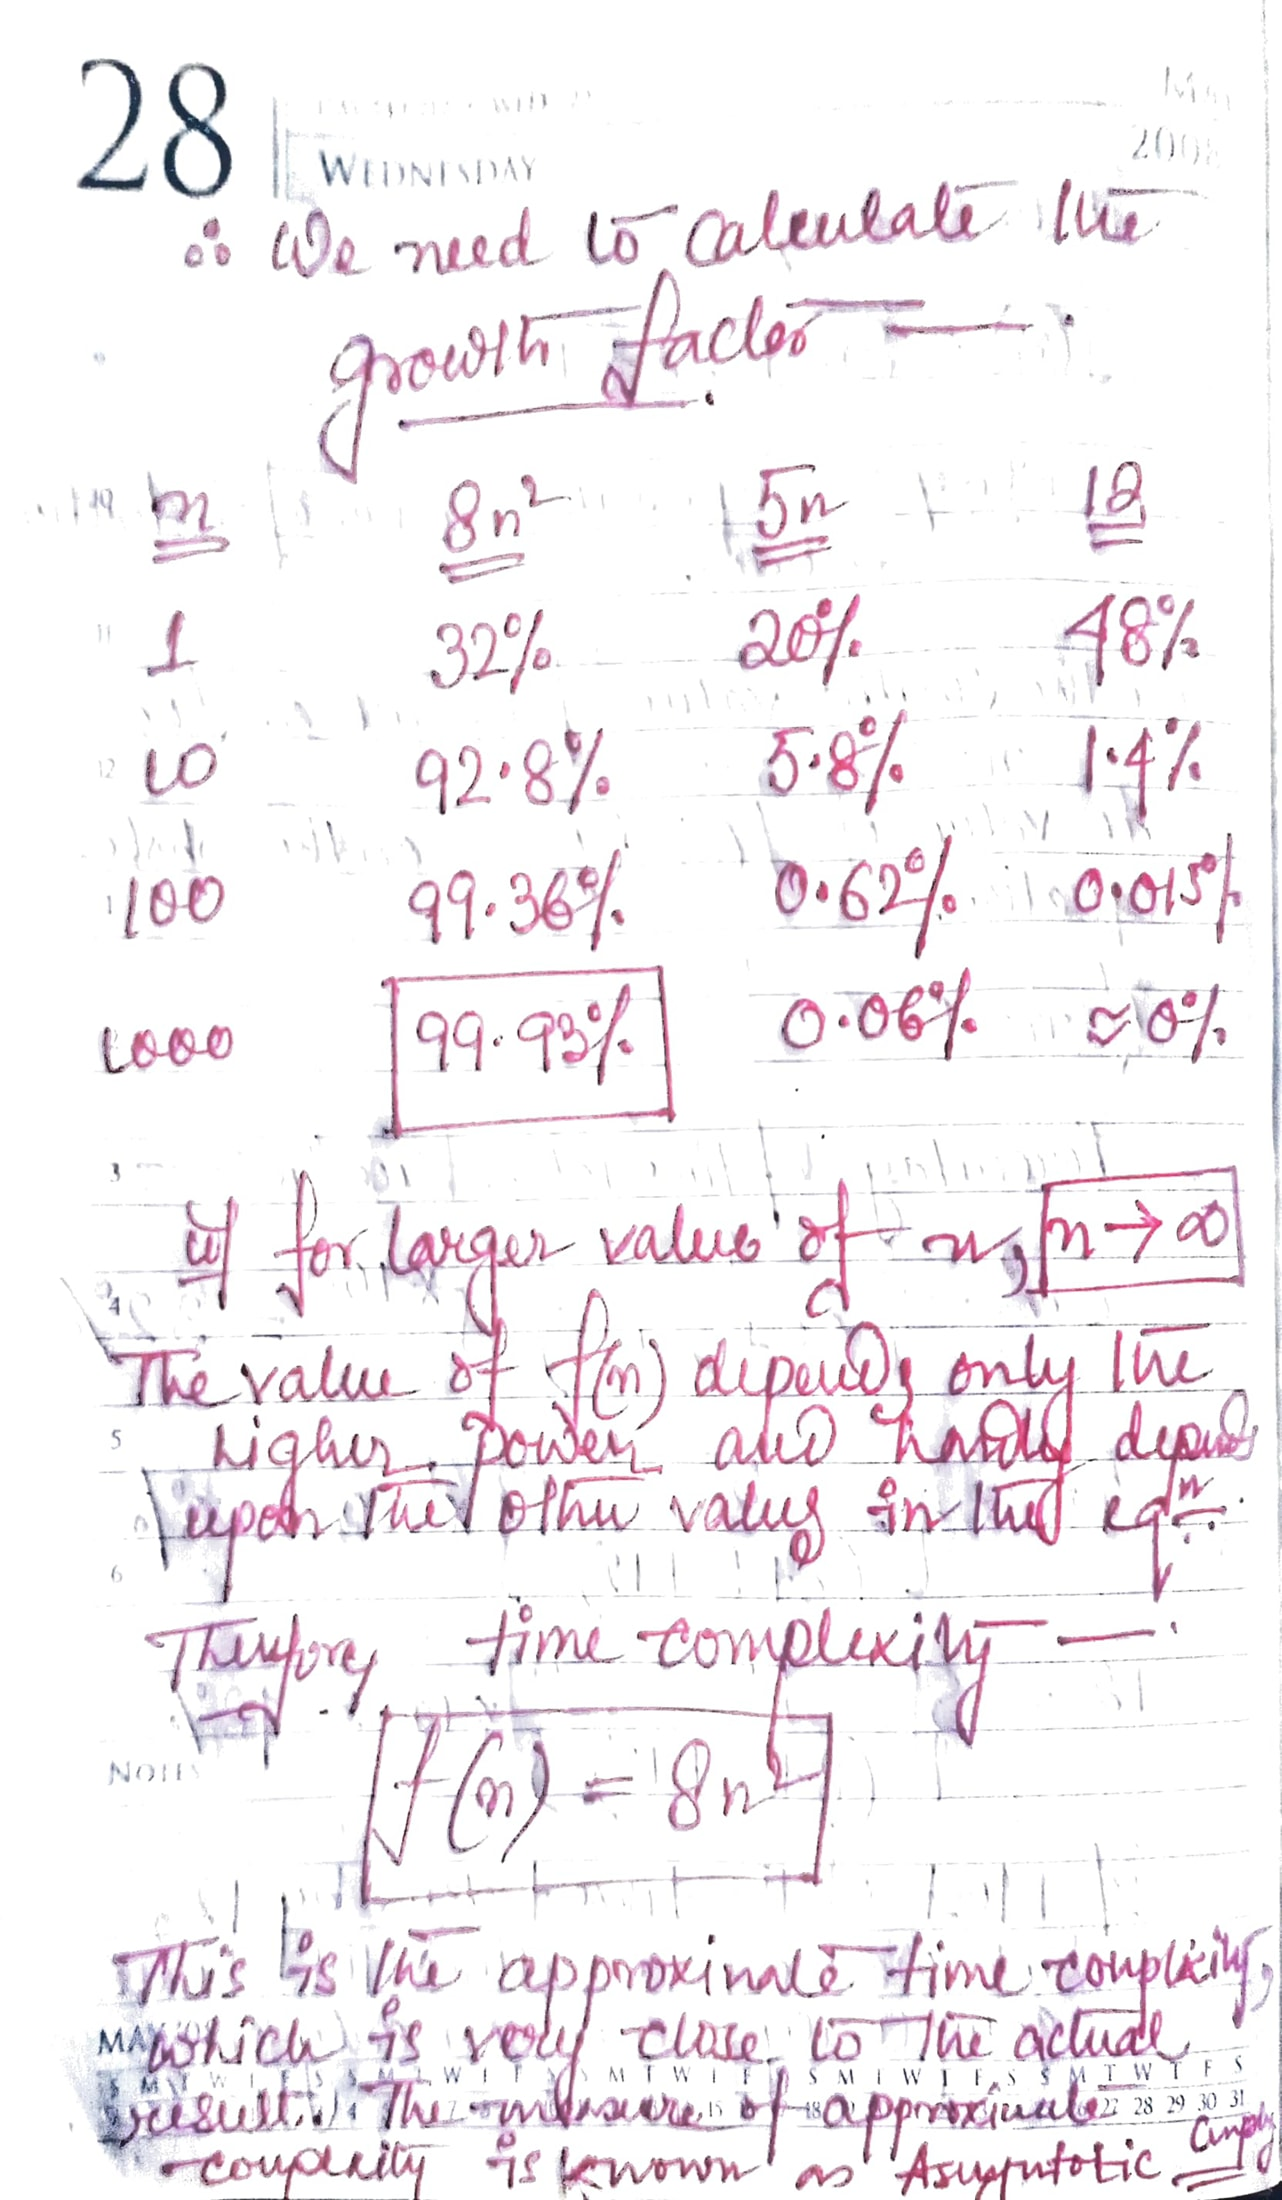 28
WEDNESDAY
2008
∴ We need to calculate the
growth factor —
n 8n² 5n 12
1 32% 20% 48%
10 92.8% 5.8% 1.4%
100 99.36% 0.62% 0.015%
1000 99.93% 0.06% ≈ 0%
3
for larger value of n, n → ∞
4
The value of f(n) depends only the
5
higher power and hardly depends
upon the other values in the eqn.
6
Therefore, time complexity —
NOTES
f(n) = 8n²
This is the approximate time complexity,
which is very close to the actual
S M T W T F S
28 29 30 31
result. The measure of approximate
complexity is known as Asymptotic